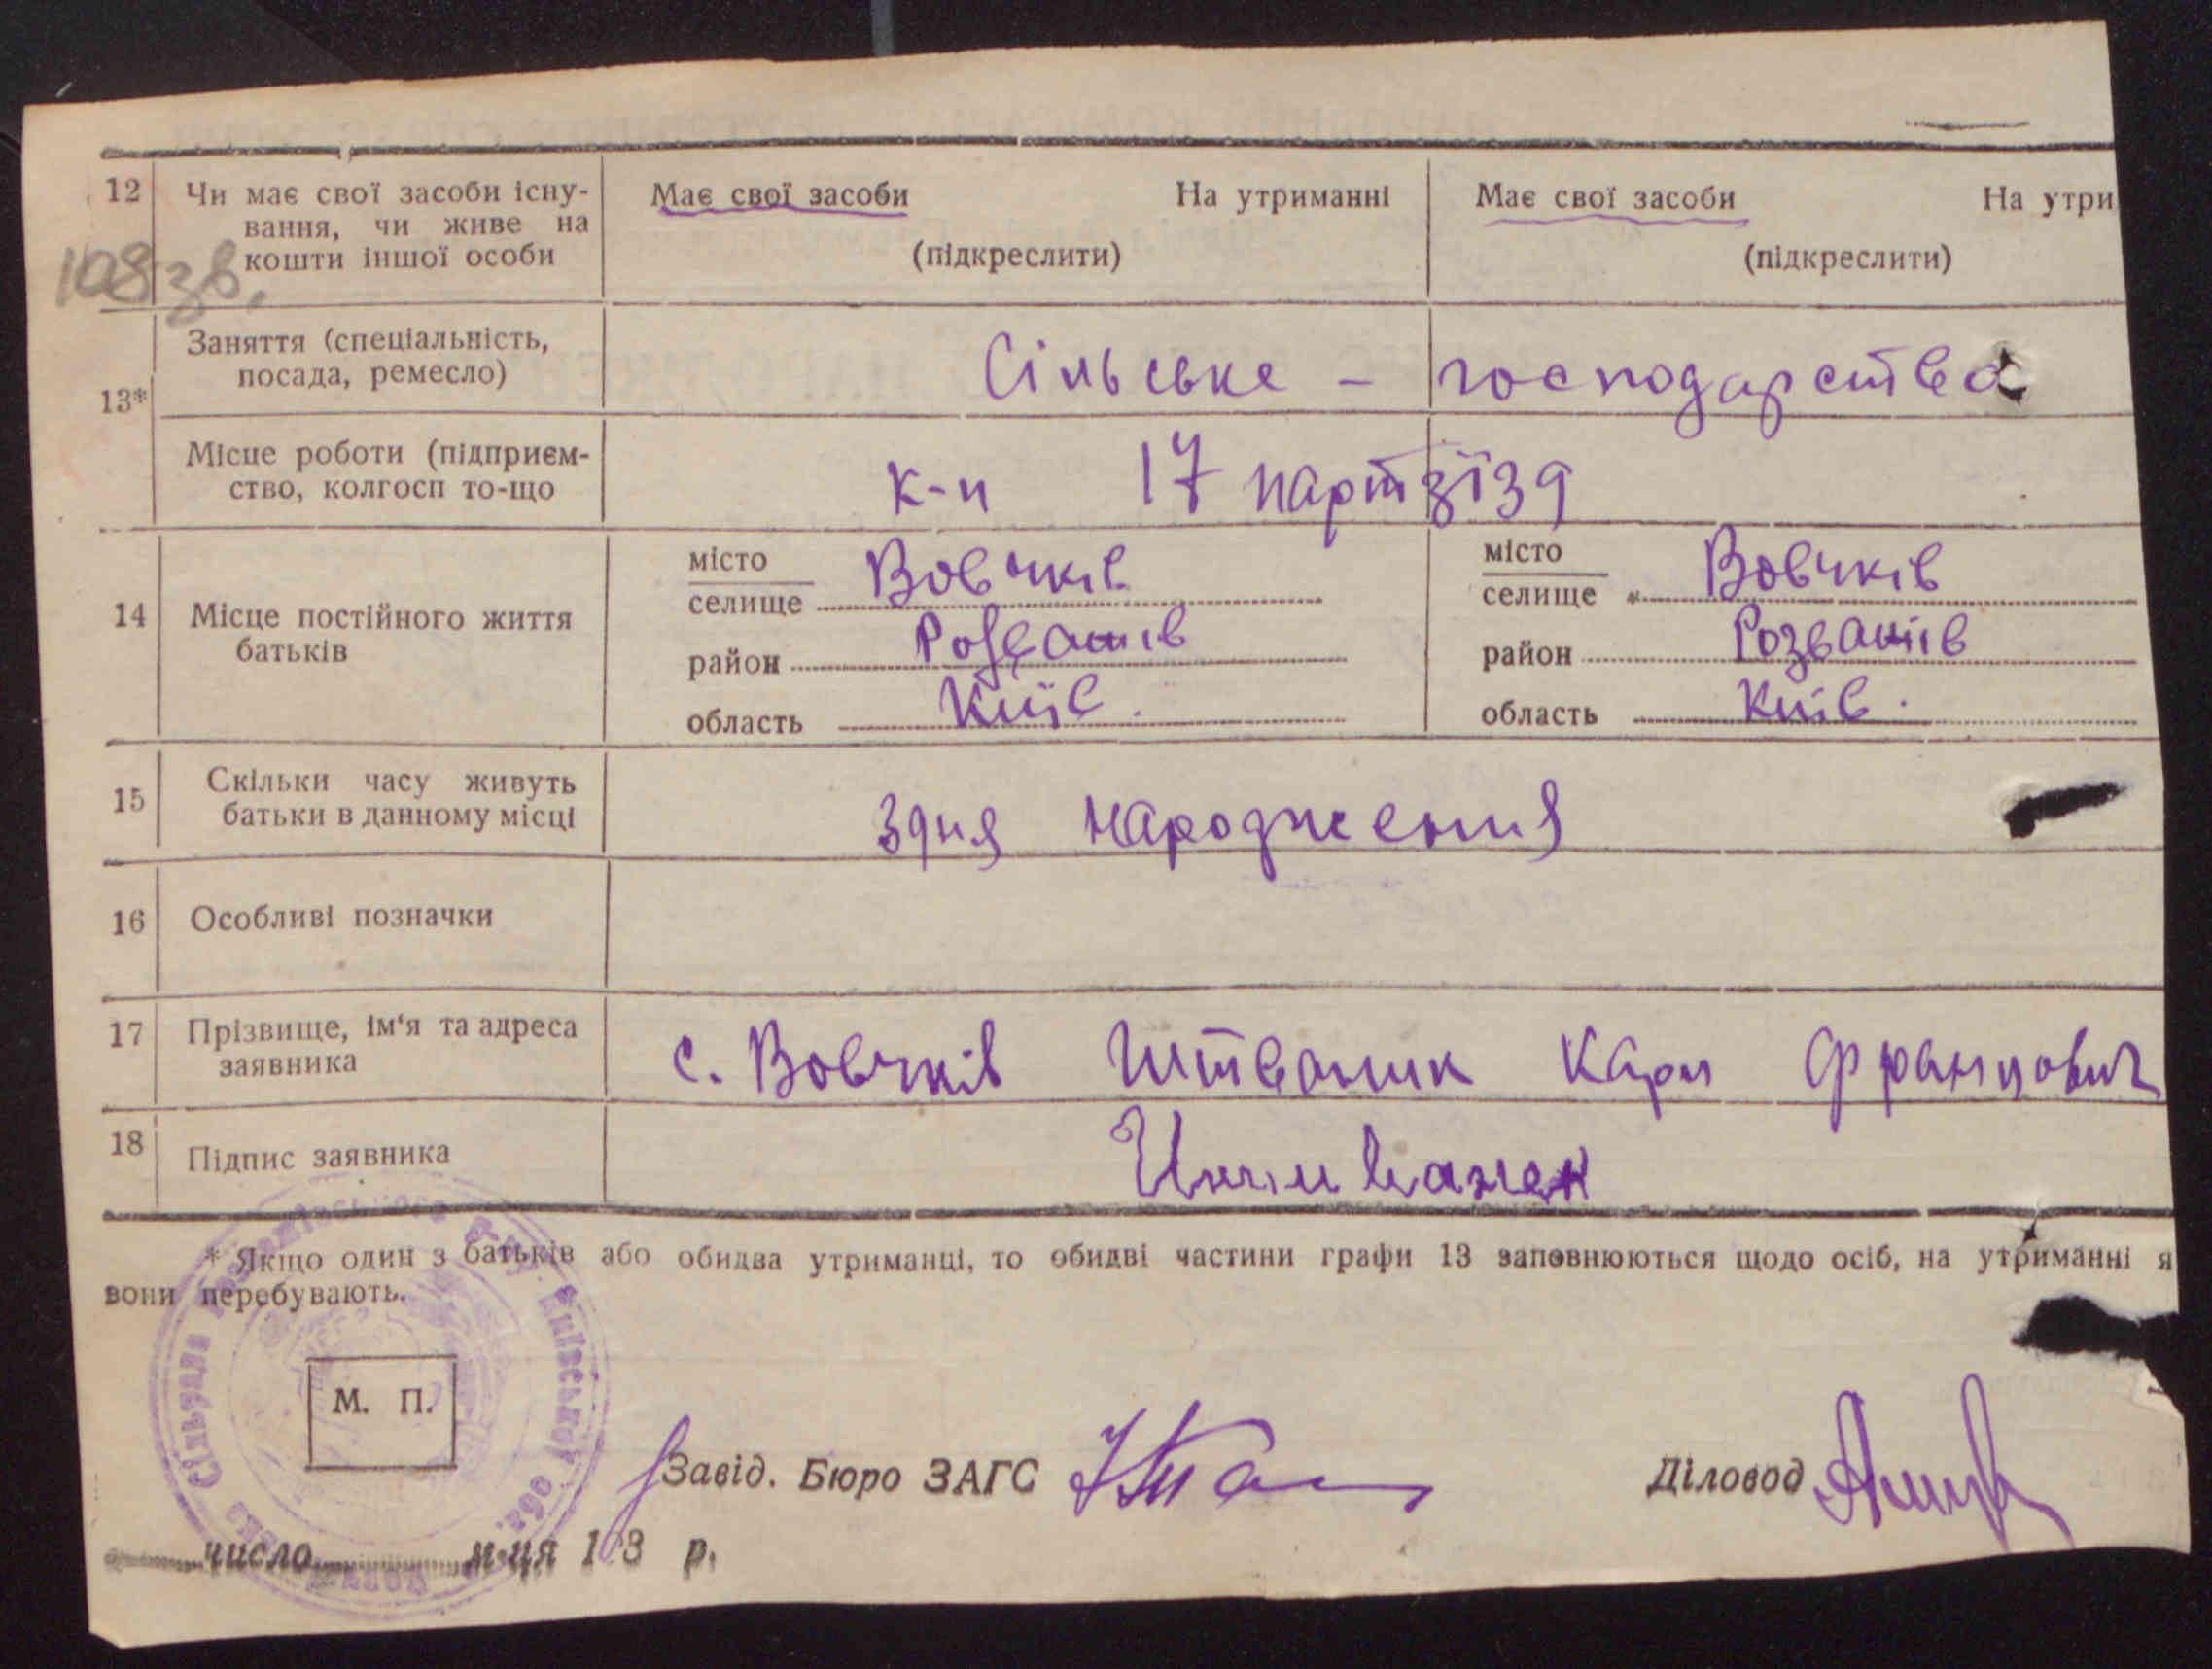 12 Чи має свої засоби існу-
вання, чи живе на
кошти іншої особи
Має свої засоби На утриманні
(підкреслити)
Має свої засоби На утри
(підкреслити)
108 зв.
13* Заняття (спеціальність,
посада, ремесло)
Сільське - господарство
Місце роботи (підприєм-
ство, колгосп то-що
к-п 17 партзїзд
14 Місце постійного життя
батьків
місто
селище Вовчків
район Розважів
область Київ.
місто
селище Вовчків
район Розважів
область Київ.
15 Скільки часу живуть
батьки в данному місці
Здня народження
16 Особливі позначки
17 Прізвище, ім'я та адреса
заявника
с. Вовчків Штваник Карл Францович
18 Підпис заявника
* Якщо один з батьків або обидва утриманці, то обидві частини графи 13 заповнюються щодо осіб, на утриманні я
вони перебувають.
М. П.
Завід. Бюро ЗАГС
Діловод
число м-ця 193 р.